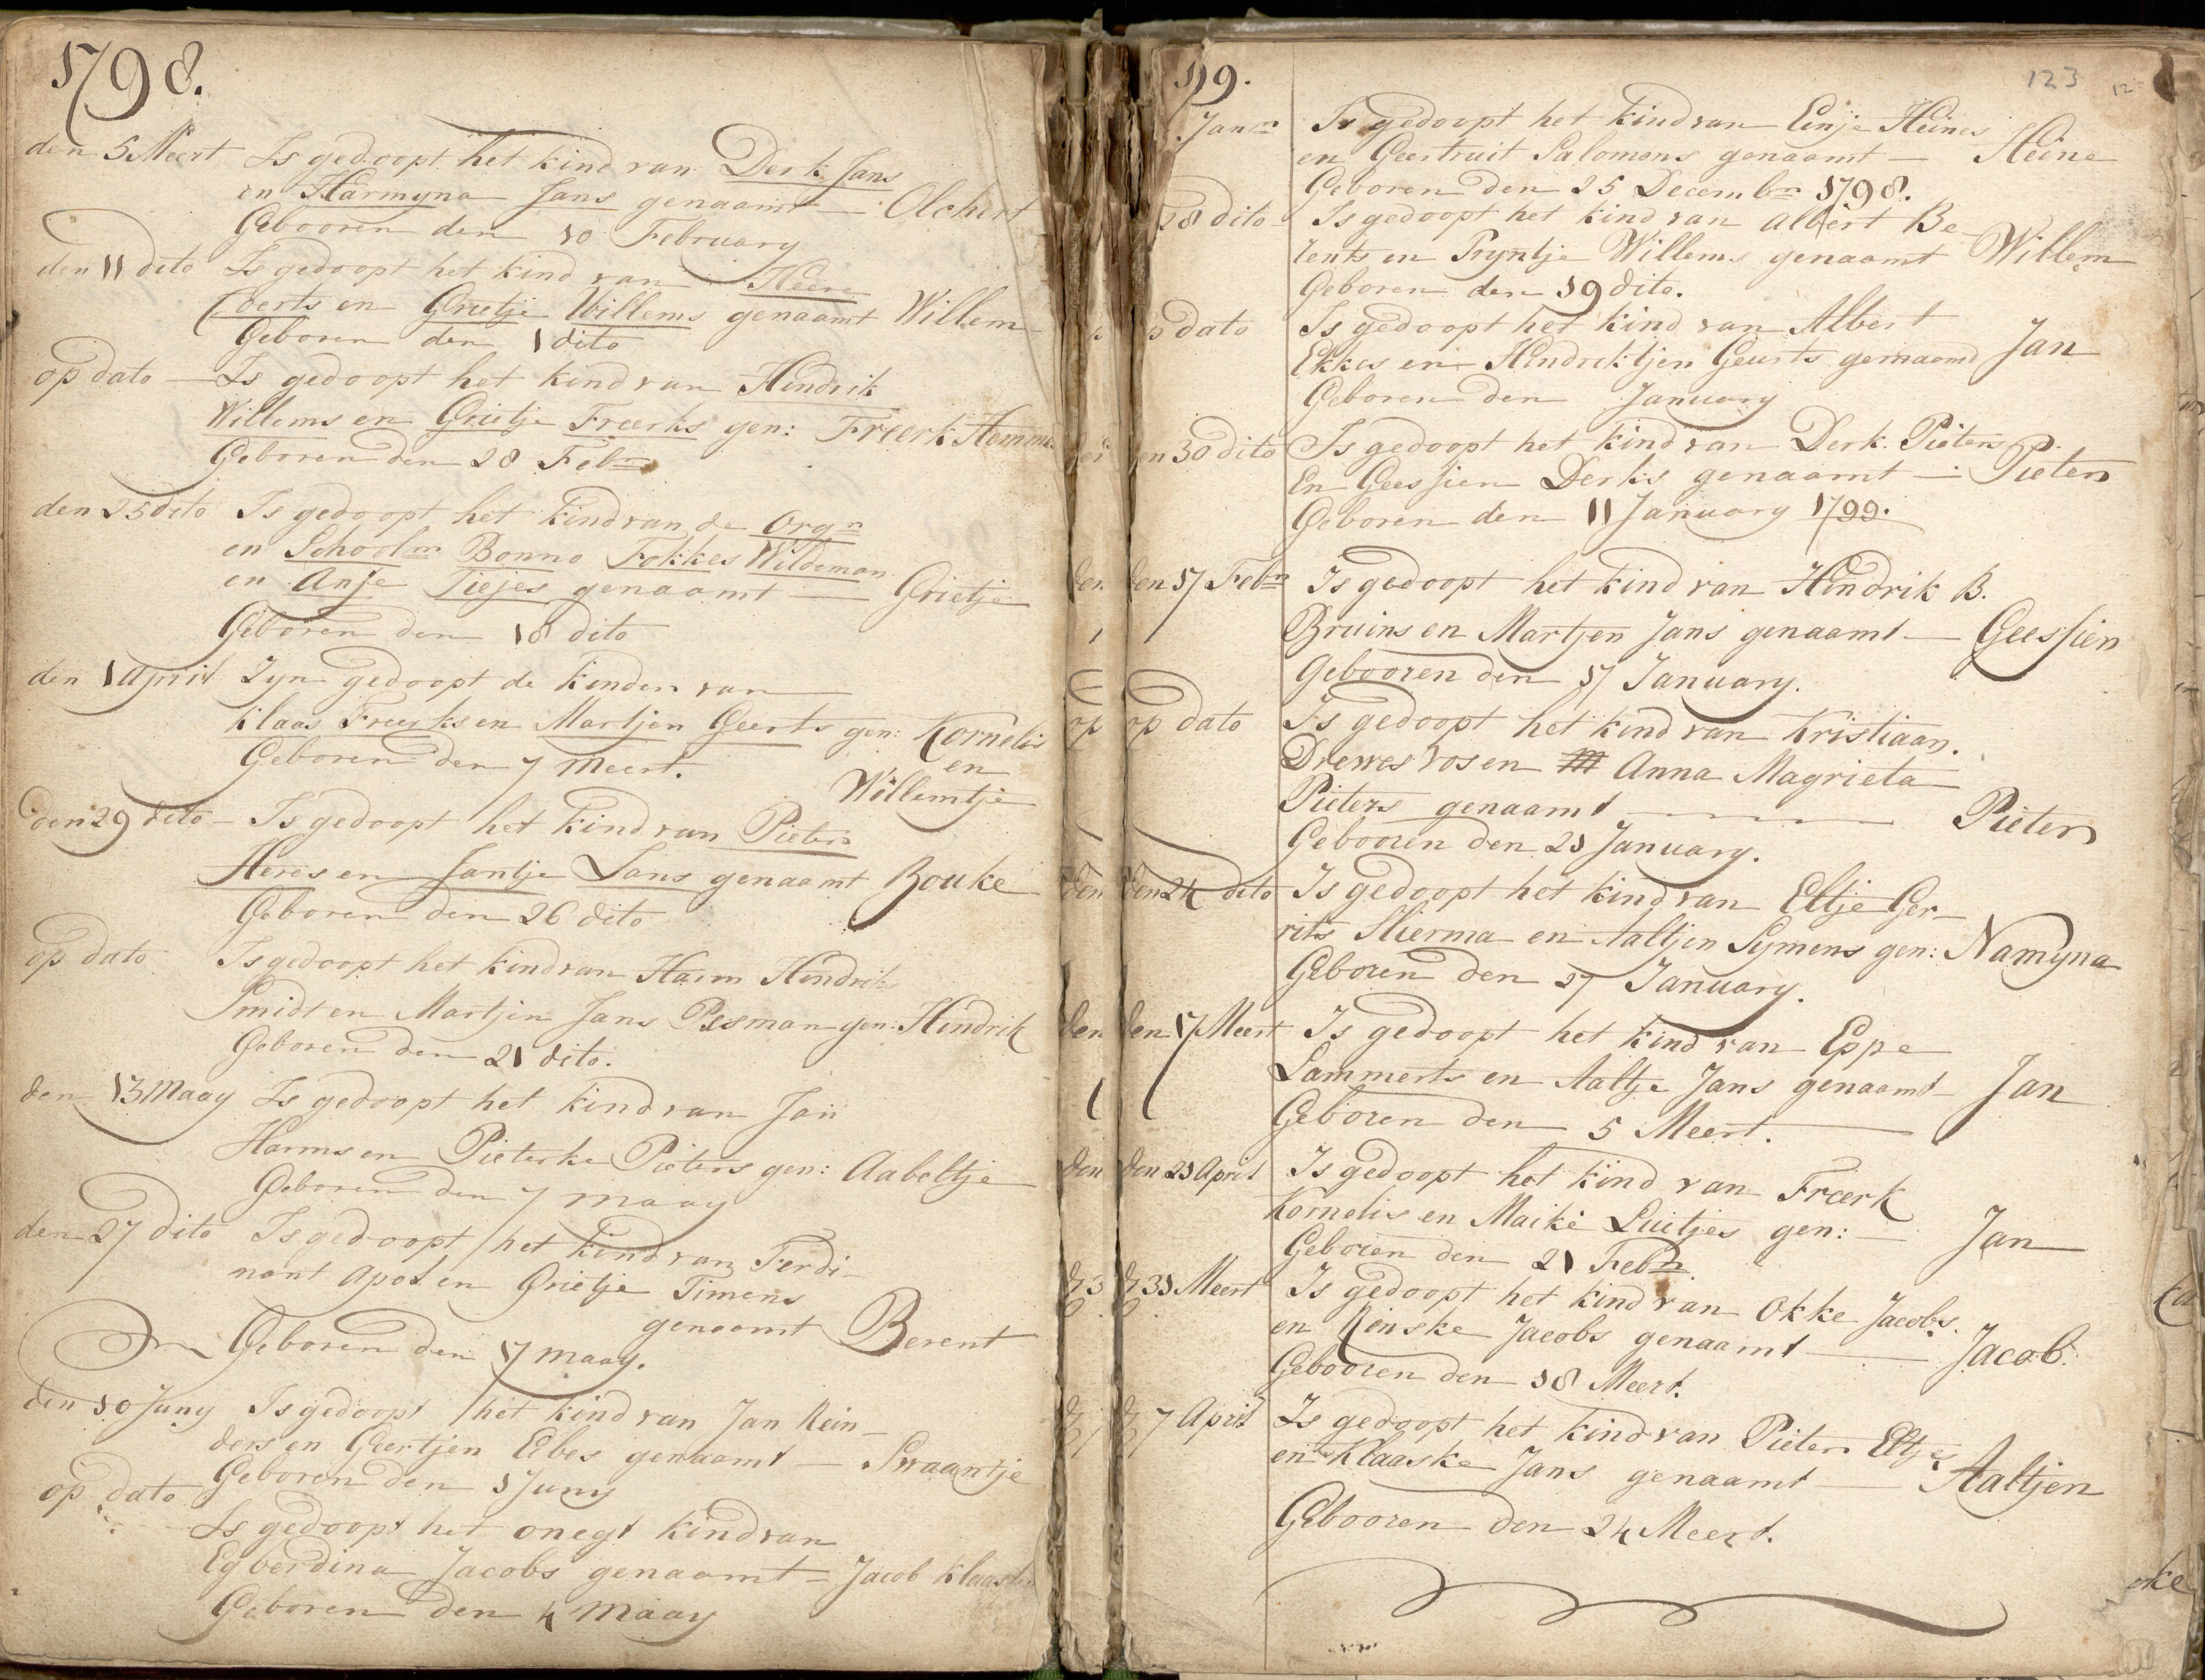 1798.
den 5 Meert Is gedoopt het kind van Derk Jans
en Harmyna Jans genaamt — Olchert
Gebooren den 10 February
den 11 dito Is gedoopt het kind van Heere
Coerts en Grietje Willems genaamt Willem
Geboren den 1 dito
op dato — Is gedoopt het kind van Hindrik
Willems en Grietje Freerks gen: Freerk Hemme
Geboren den 28 Febr
den 25 dito Is gedoopt het kind van de Orgn
en Schoolm Bonno Fokkes Wildeman
en Anje Tiejes genaamt — Grietje
Geboren den 18 dito
den 1 April Zyn gedoopt de kinderen van
Klaas Freerks en Martjen Geerts gen: Kornelis
Geboren den 7 Meert. en
Willemtje
den 29 dito — Is gedoopt het kind van Pieter
Heres en Jantje Jans genaamt Bouke
Geboren den 26 dito
op dato Is gedoopt het kind van Harm Hindriks
Smidt en Martjen Jans Pesman gen: Hindrik
Geboren den 21 dito.
den 13 Maay Is gedoopt het kind van Jan
Harms en Pieterke Pieters gen: Aabeltje
Geboren den 7 maay
den 27 dito Is gedoopt het kind van Ferdi-
nant Apol en Grietje Timens
genaamt Berent
Geboren den 17 maay.
den 10 Juny Is gedoopt het kind van Jan Rein-
ders en Geertjen Eebes genaamt — Swaantje
Geboren den 1 Juny
op dato
Is gedoopt het onegt kind van
Egberdina Jacobs genaamt = Jacob Klaas
Geboren den 4 Maay
99.
123
12
Janr Is gedoopt het kind van Eenje Heines
en Geertruit Salomons genaamt — Heine
Geboren den 25 Decembr 1798.
28 dito Is gedoopt het kind van Albert Be-
rents en Pryntje Willems genaamt Willem
Geboren den 19 dito.
p dato Is gedoopt het kind van Albert
Ekkes en Hendriktjen Geurts genaamd Jan
Geboren den January
en 30 dito Is gedoopt het kind van Derk Pieters
En Geessien Derks genaamt — Pieter
Geboren den 11 January 1799.
den 17 Febr Is gedoopt het kind van Hindrik B.
Bruins en Martjen Jans genaamt — Geessien
Gebooren den 17 January.
op dato Is gedoopt het kind van Kristiaan
Drewes Vos en Anna Magrieta
Pieters genaamt — Pieter
Gebooren den 21 January.
den 24 dito Is gedoopt het kind van Eltje Ger-
rits Hierma en Aaltjen Symens gen: Namyna
Geboren den 27 January.
den 17 Meert Is gedoopt het kind van Eppe
Lammerts en Aaltje Jans genaamt — Jan
Geboren den 5 Meert.
den 21 April Is gedoopt het kind van Freerk
Kornelis en Maike Luitjes gen: — Jan
Geboren den 21 Febr
d 31 Meert Is gedoopt het kind van Okke Jacobs
en Rinske Jacobs genaamt — Jacob.
Gebooren den 18 Meert.
d 7 April Is gedoopt het kind van Pieter Eltjes
en Klaaske Jans genaamt — Aaltjen
Gebooren den 24 Meert.
oke